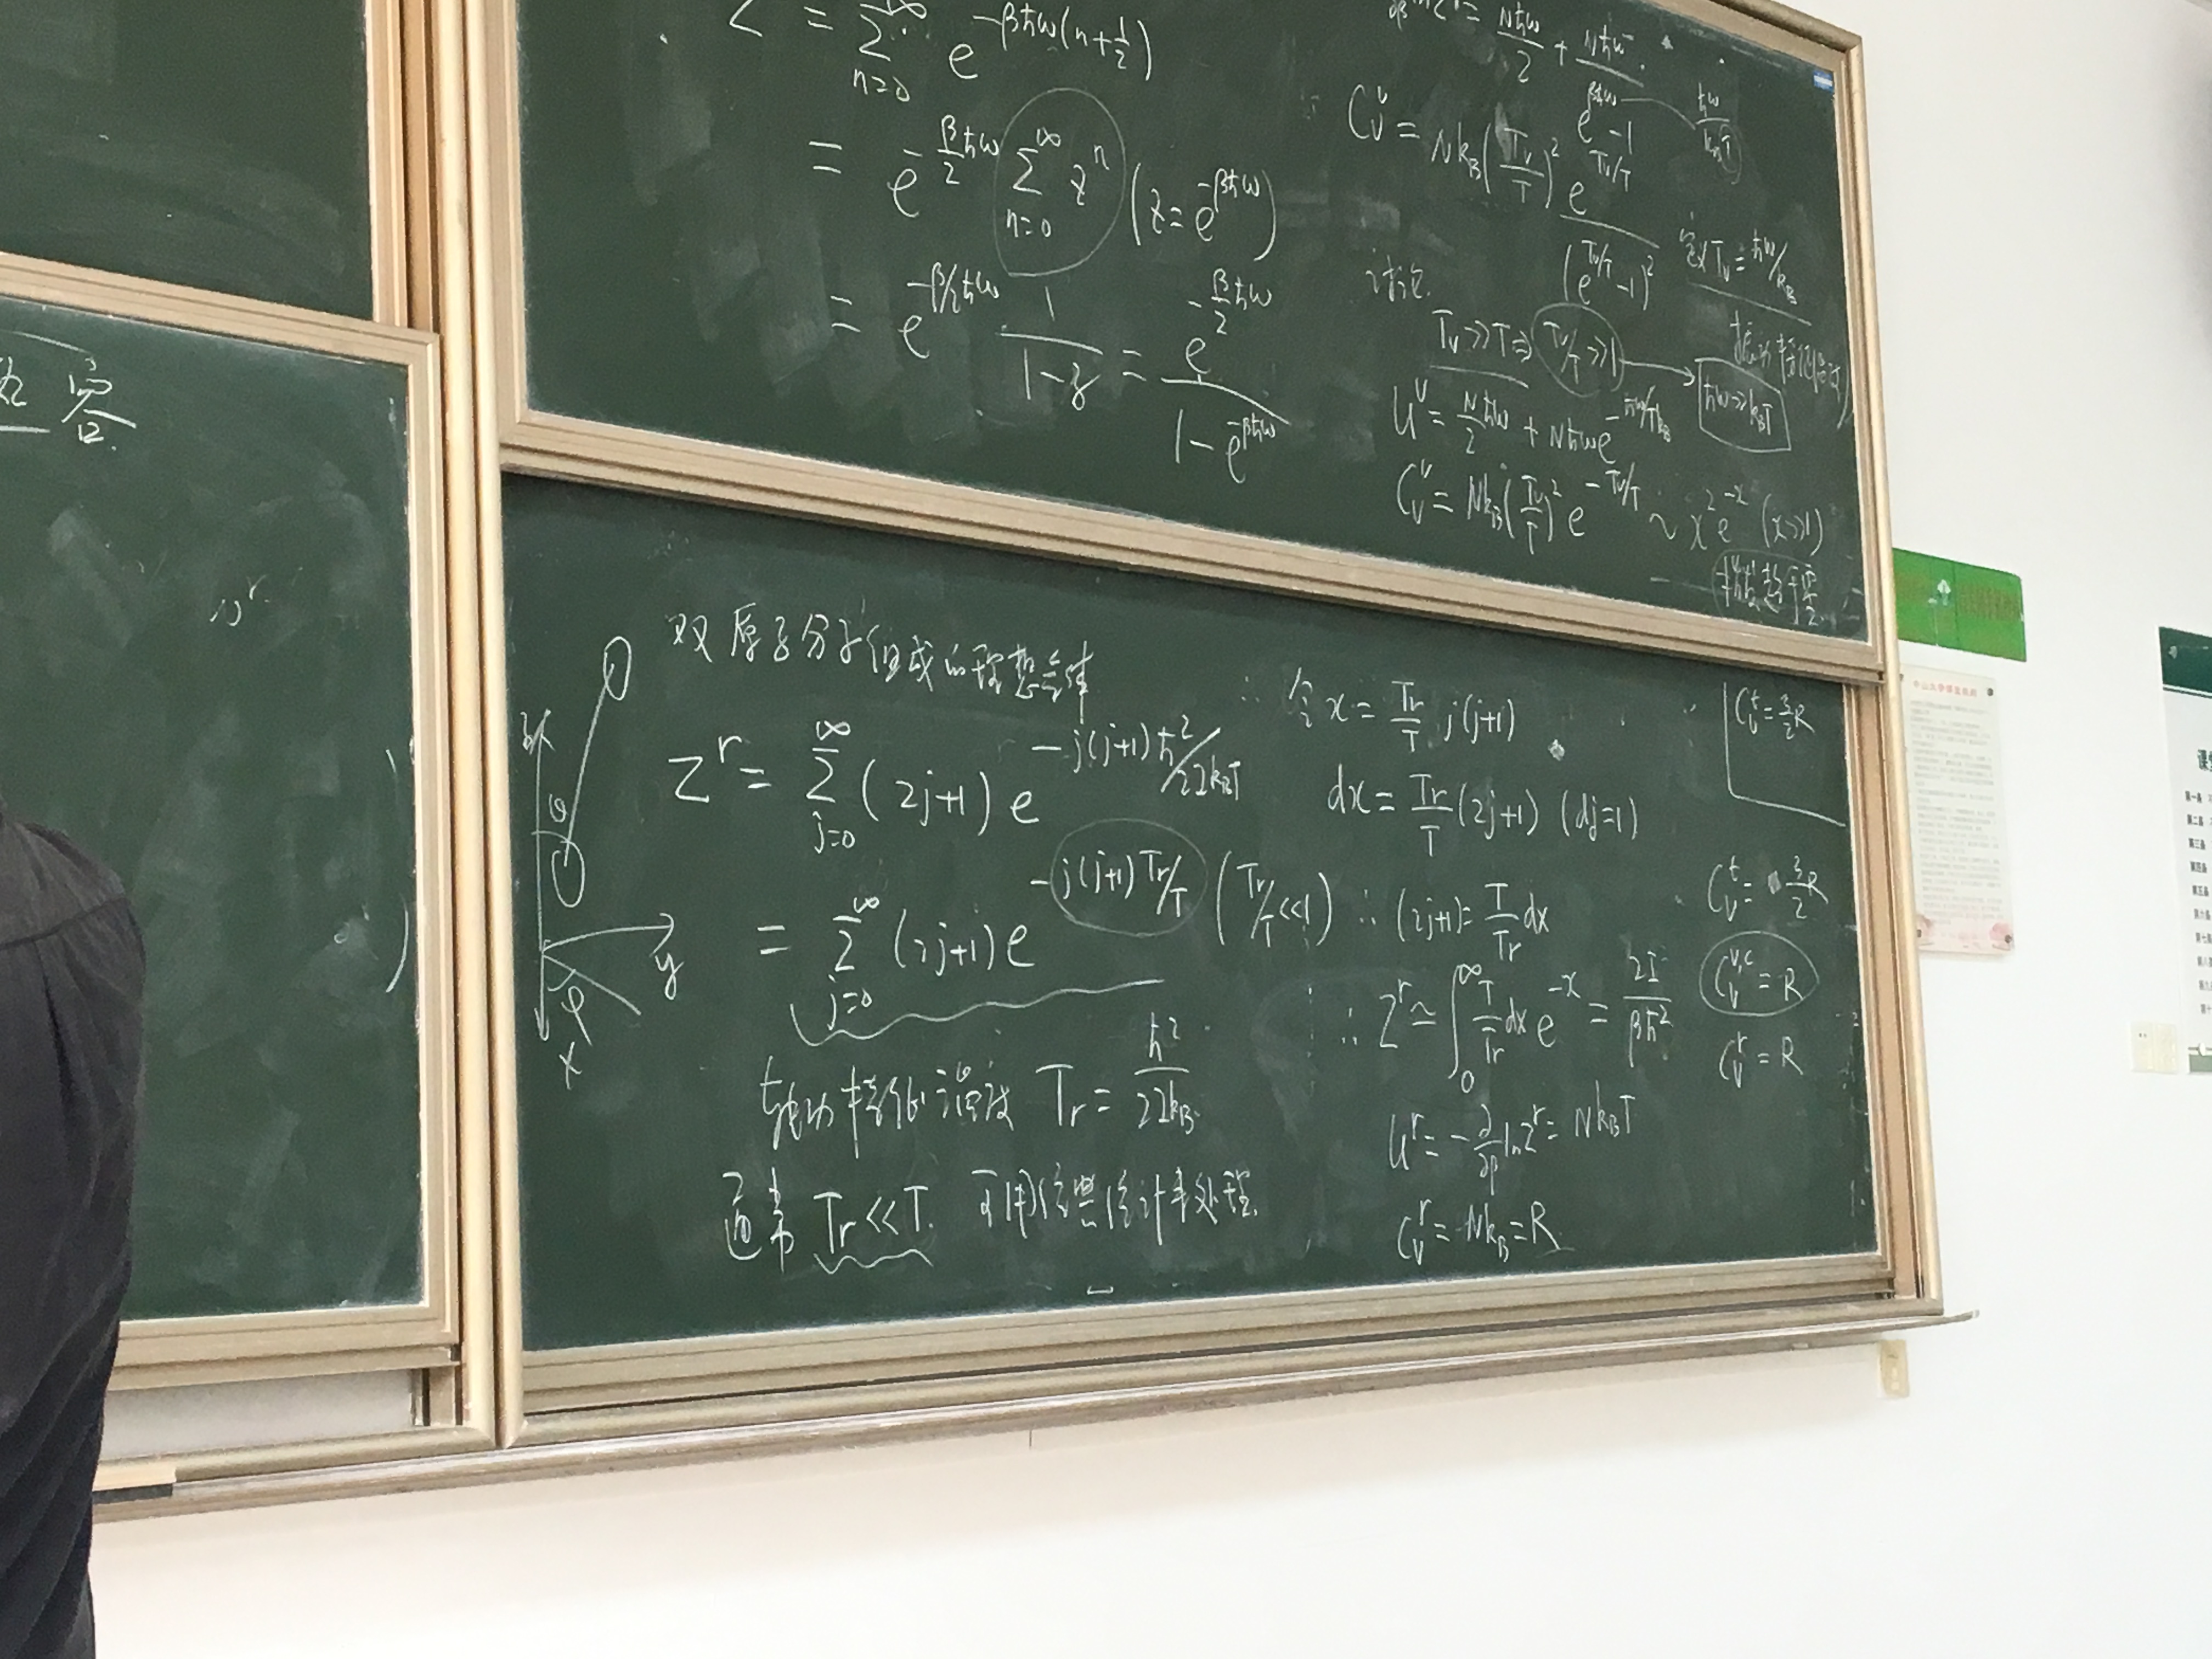 Z = Σ_{n=0}^{∞} e^{-βħω(n+1/2)}
= e^{-β/2 ħω} Σ_{n=0}^{∞} z^n (z=e^{-βħω})
= e^{-β/2 ħω} 1/(1-z) = e^{-β/2 ħω}/(1-e^{-βħω})
= Nħω/2 + Nħω/(e^{βħω}-1)
ħω/(k_BT)
C_V^v = Nk_B(T_v/T)^2 e^{T_v/T}/(e^{T_v/T}-1)^2
定义 T_v = ħω/k_B
振动特征温度
讨论.
T_v >> T ⇒ T_v/T >> 1 → ħω >> k_BT
U^v = N/2 ħω + Nħω e^{-ħω/Tk_B}
C_V^v = Nk_B(T_v/T)^2 e^{-T_v/T} ~ x^2 e^{-x} (x>>1)
趋于零.
双原子分子组成的理想气体
z
θ
y
φ
x
Z^r = Σ_{j=0}^{∞} (2j+1) e^{-j(j+1)ħ^2/2Ik_BT}
= Σ_{j=0}^{∞} (2j+1) e^{-j(j+1)T_r/T} (T_r/T <<1)
转动特征温度 T_r = ħ^2/2Ik_B
通常 T_r << T. 可用经典统计来处理.
∴ 令 x = T_r/T j(j+1)
dx = T_r/T (2j+1) (dj=1)
∴ (2j+1) = T/T_r dx
∴ Z^r ≃ ∫_0^∞ T/T_r dx e^{-x} = 2I/βħ^2
U^r = -∂/∂β ln Z^r = Nk_BT
C_V^r = Nk_B = R
C_V^t = 3/2 R
C_V^t = 3/2 R
C_V^{v,c} = R
C_V^r = R
第一条
第二条
第三条
第四条
第五条
第六条